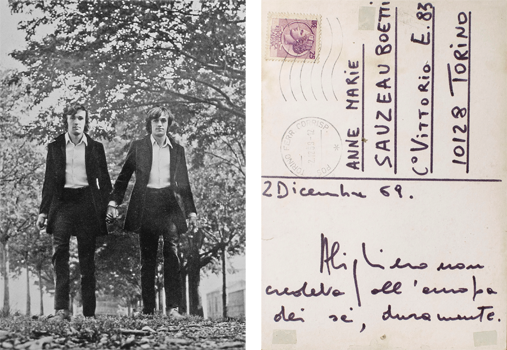 ANNE MARIE
SAUZEAU BOETTI
C° VITTORIO E. 83
10128 TORINO
2 Dicembre 69.
Alighiero non
credeva all'europa
dei sé, duramente.